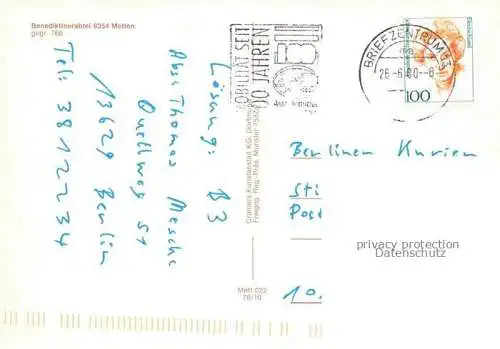 Benediktinerabtei 8354 Metten
gegr. 766
MOBILITÄT SEIT
100 JAHREN
BRIEFZENTRUM 13
28.-6.00-6
Deutschland
100
Lösung: B3
Abs: Thomas Mesche
Quellweg 51
13629 Berlin
Tel: 3812234
Berliner Kurier
Sti
Post
10.
Cramers Kunstanstalt KG, Dortmund
Freigeg. Reg.-Präs. Münster
Mett 022
76/10
privacy protection
Datenschutz